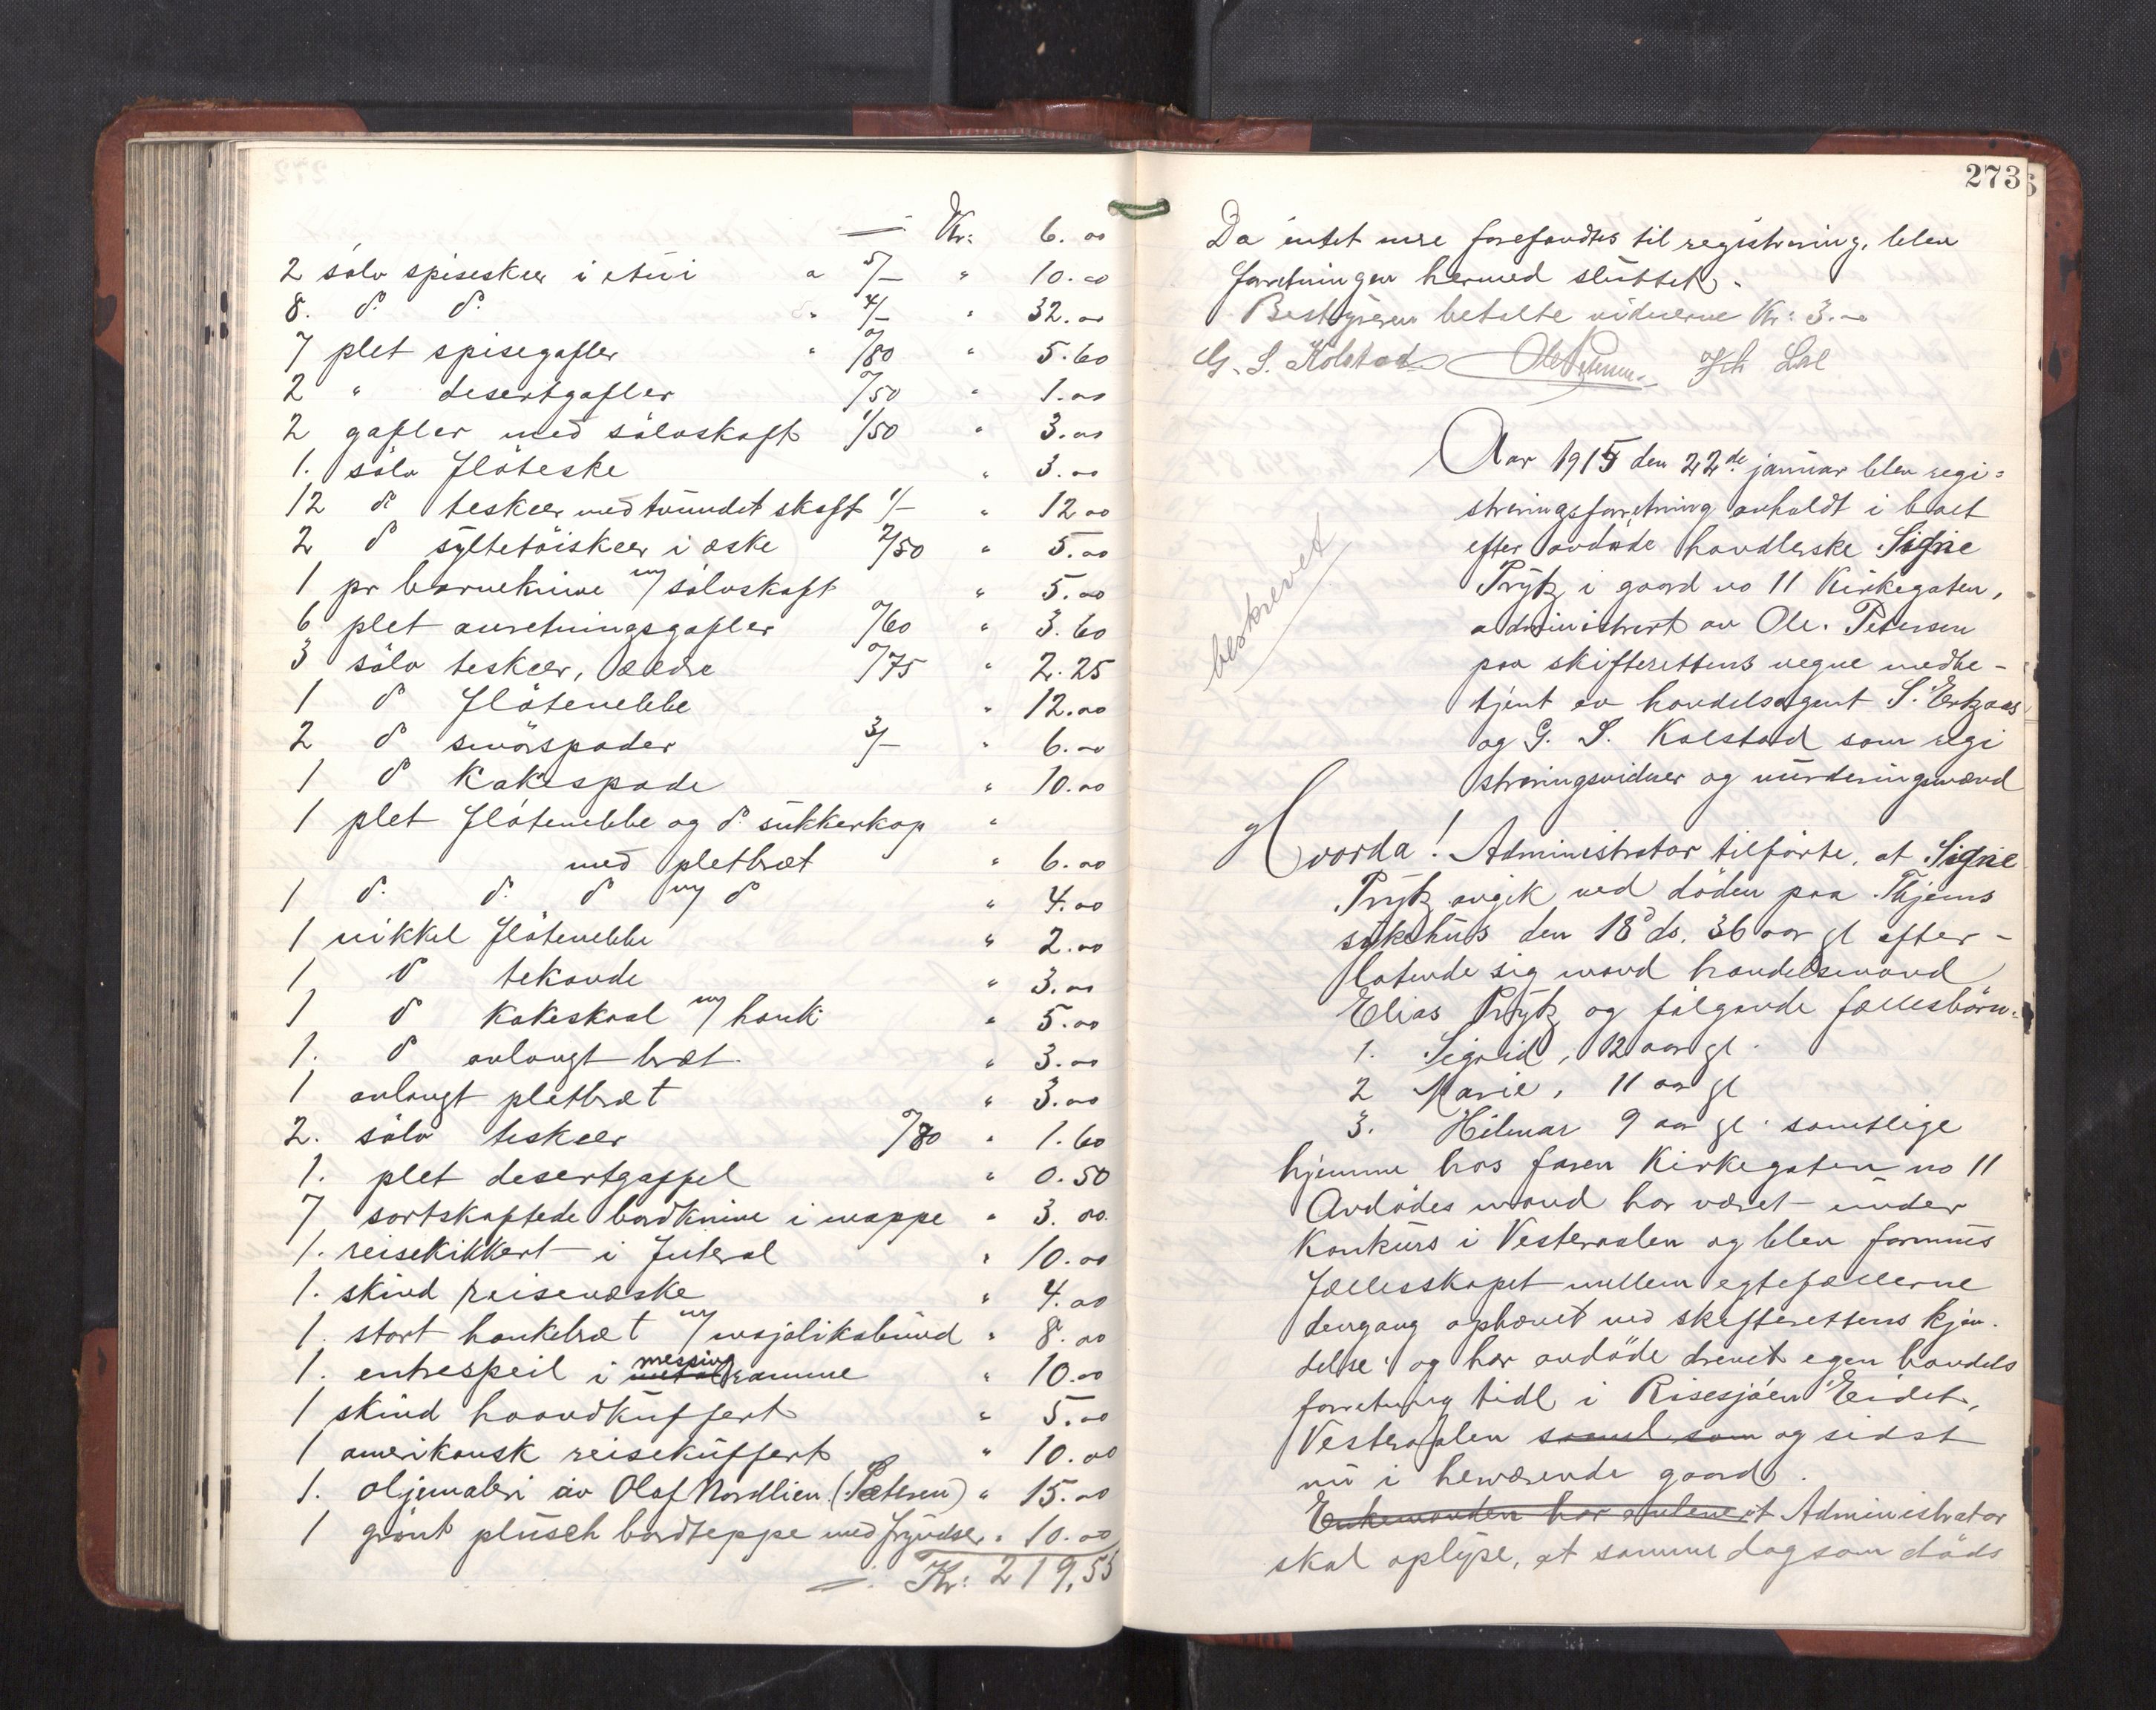 — Kr: 6.00
2 sölv spiseskeer i etui a 5/– " 10.00
8. do do " 4/– " 32.00
7 plet spisegafler " 0/80 " 5.60
2 " desertgafler 0/50 " 1.00
2 gafler med sölvskaft 1/50 " 3.00
1. sölv flöteske " 3.00
12 do teskeer med tvundet skaft 1/– " 12.00
2 do syltetöiskeer i æske 2/50 " 5.00
1 pr barneknive m/ sölvskaft " 5.00
6 plet anretningsgafler 0/60 " 3.60
3 sölv teskeer, ældre 0/75 " 2.25
1 do flötenebbe " 12.00
2 do smörspader 3/– " 6.00
1 do Kakespade " 10.00
1 plet flötenebbe og do sukkerkop "
med pletbræt " 6.00
1 do. do. do m/ do " 4.00
1 nikkel flötenebbe " 2.00
1 do tekande " 3.00
1 do kakeskaal m/ hank " 5.00
1. do avlangt bræt. " 3.00
1 avlangt pletbræt " 3.00
2. sölv teskeer 0/80 " 1.60
1. plet desertgaffel " 0.50
7 sortskaftede bordknive i mappe " 3.00
1. reisekikkert i futeral " 10.00
1. skind reisevæske " 4.00
1. stort hankebræt m/ majolikabund " 8.00
1. entrespeil i metal messing ramme " 10.00
1 skind haandkuffert " 5.00
1 amerikansk reisekuffert " 10.00
1. oljemaleri av Olaf Nordlien (Petersen) " 15.00
1 grönt plüsch bordteppe med fryndser " 10.00
Kr: 219,55
273
Da intet mere forefandtes til registrering, blev
forretningen hermed sluttet.
Bestyreren betalte vidnerne Kr: 3.00
G. S. Kolstad Ole Petersen
Aar 1915 den 22de januar blev regi-
streringsforretning avholdt i boet
efter avdöde handlerske Signe
Prytz i gaard no 11 Kirkegaten,
administrert av Ole. Petersen
paa skifterettens vegne medbe-
tjent av handelsagent S. Ertzaas
og G. S. Kolstad som regi
streringsvidner og vurderingsmænd
beskrevet
Hvorda! Administrator tilförte, at Signe
Prytz avgik ved döden paa Thjems
sykehus den 18de ds. 36 aar gl efter-
latende sig mand handelsmand
Elias Prytz og fölgende fællesbörn.
1. Sigrid, 12 aar gl.
2 Marie, 11 aar gl
3. Hilmar 9 aar gl. samtlige
hjemme hos faren Kirkegaten no 11
Avdödes mand har været under
Konkurs i Vesteraalen og blev formues
fællesskapet mellem egtefællerne
dengang ophævet ved skifterettens kjen-
delse og har avdöde drevet egen handels
forretning tidl i Risesjöen Eidet,
Vesteraalen samt som og sidst
nu i henværende gaard.
Enkemanden har Administrator
skal oplyse, at samme dag som döds